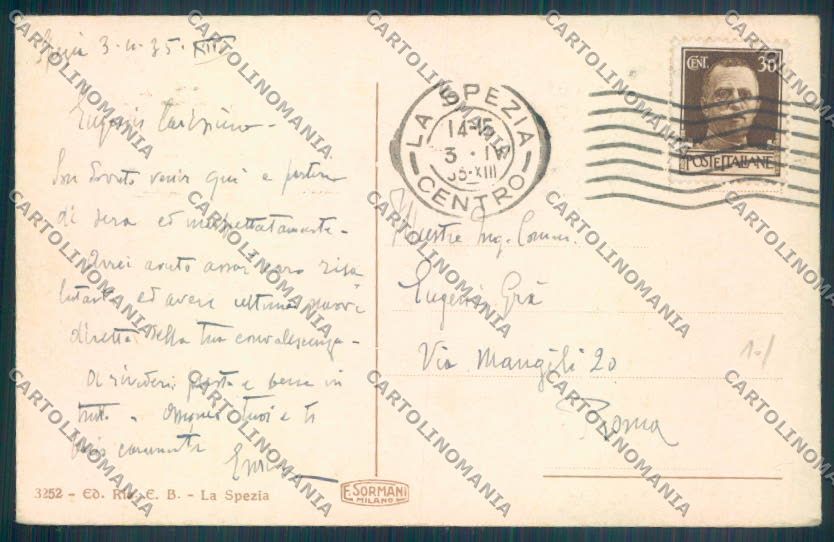 3-4-35-XIII
Eugenio Carissimo -
Son dovuto venir qui e partire
di sera ed inaspettatamente -
Avrei avuto assai caro risa
lutarti ed avere ultime nuove
dirette della tua convalescenza -
a presto e bene in
tutto - tuoi e ti
caramente
3252 - Ed. Rit. E. B. - La Spezia
F. SORMANI
MILANO
LA SPEZIA
14-15
3 IV
35-XIII
CENTRO
CENT. 30
POSTE ITALIANE
Illustre Ing. Comm.
Eugenio Grà
Via Mangili 20
Roma
CARTOLINOMANIA